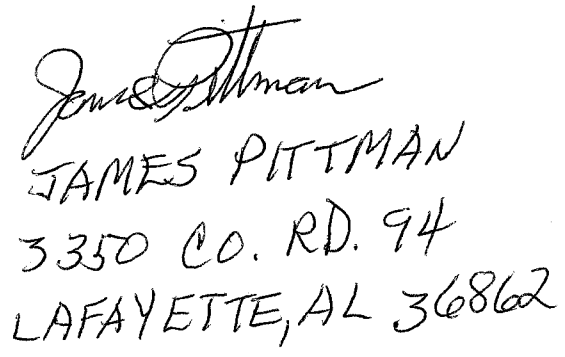 James Pittman
JAMES PITTMAN
3350 CO. RD. 94
LAFAYETTE, AL 36862